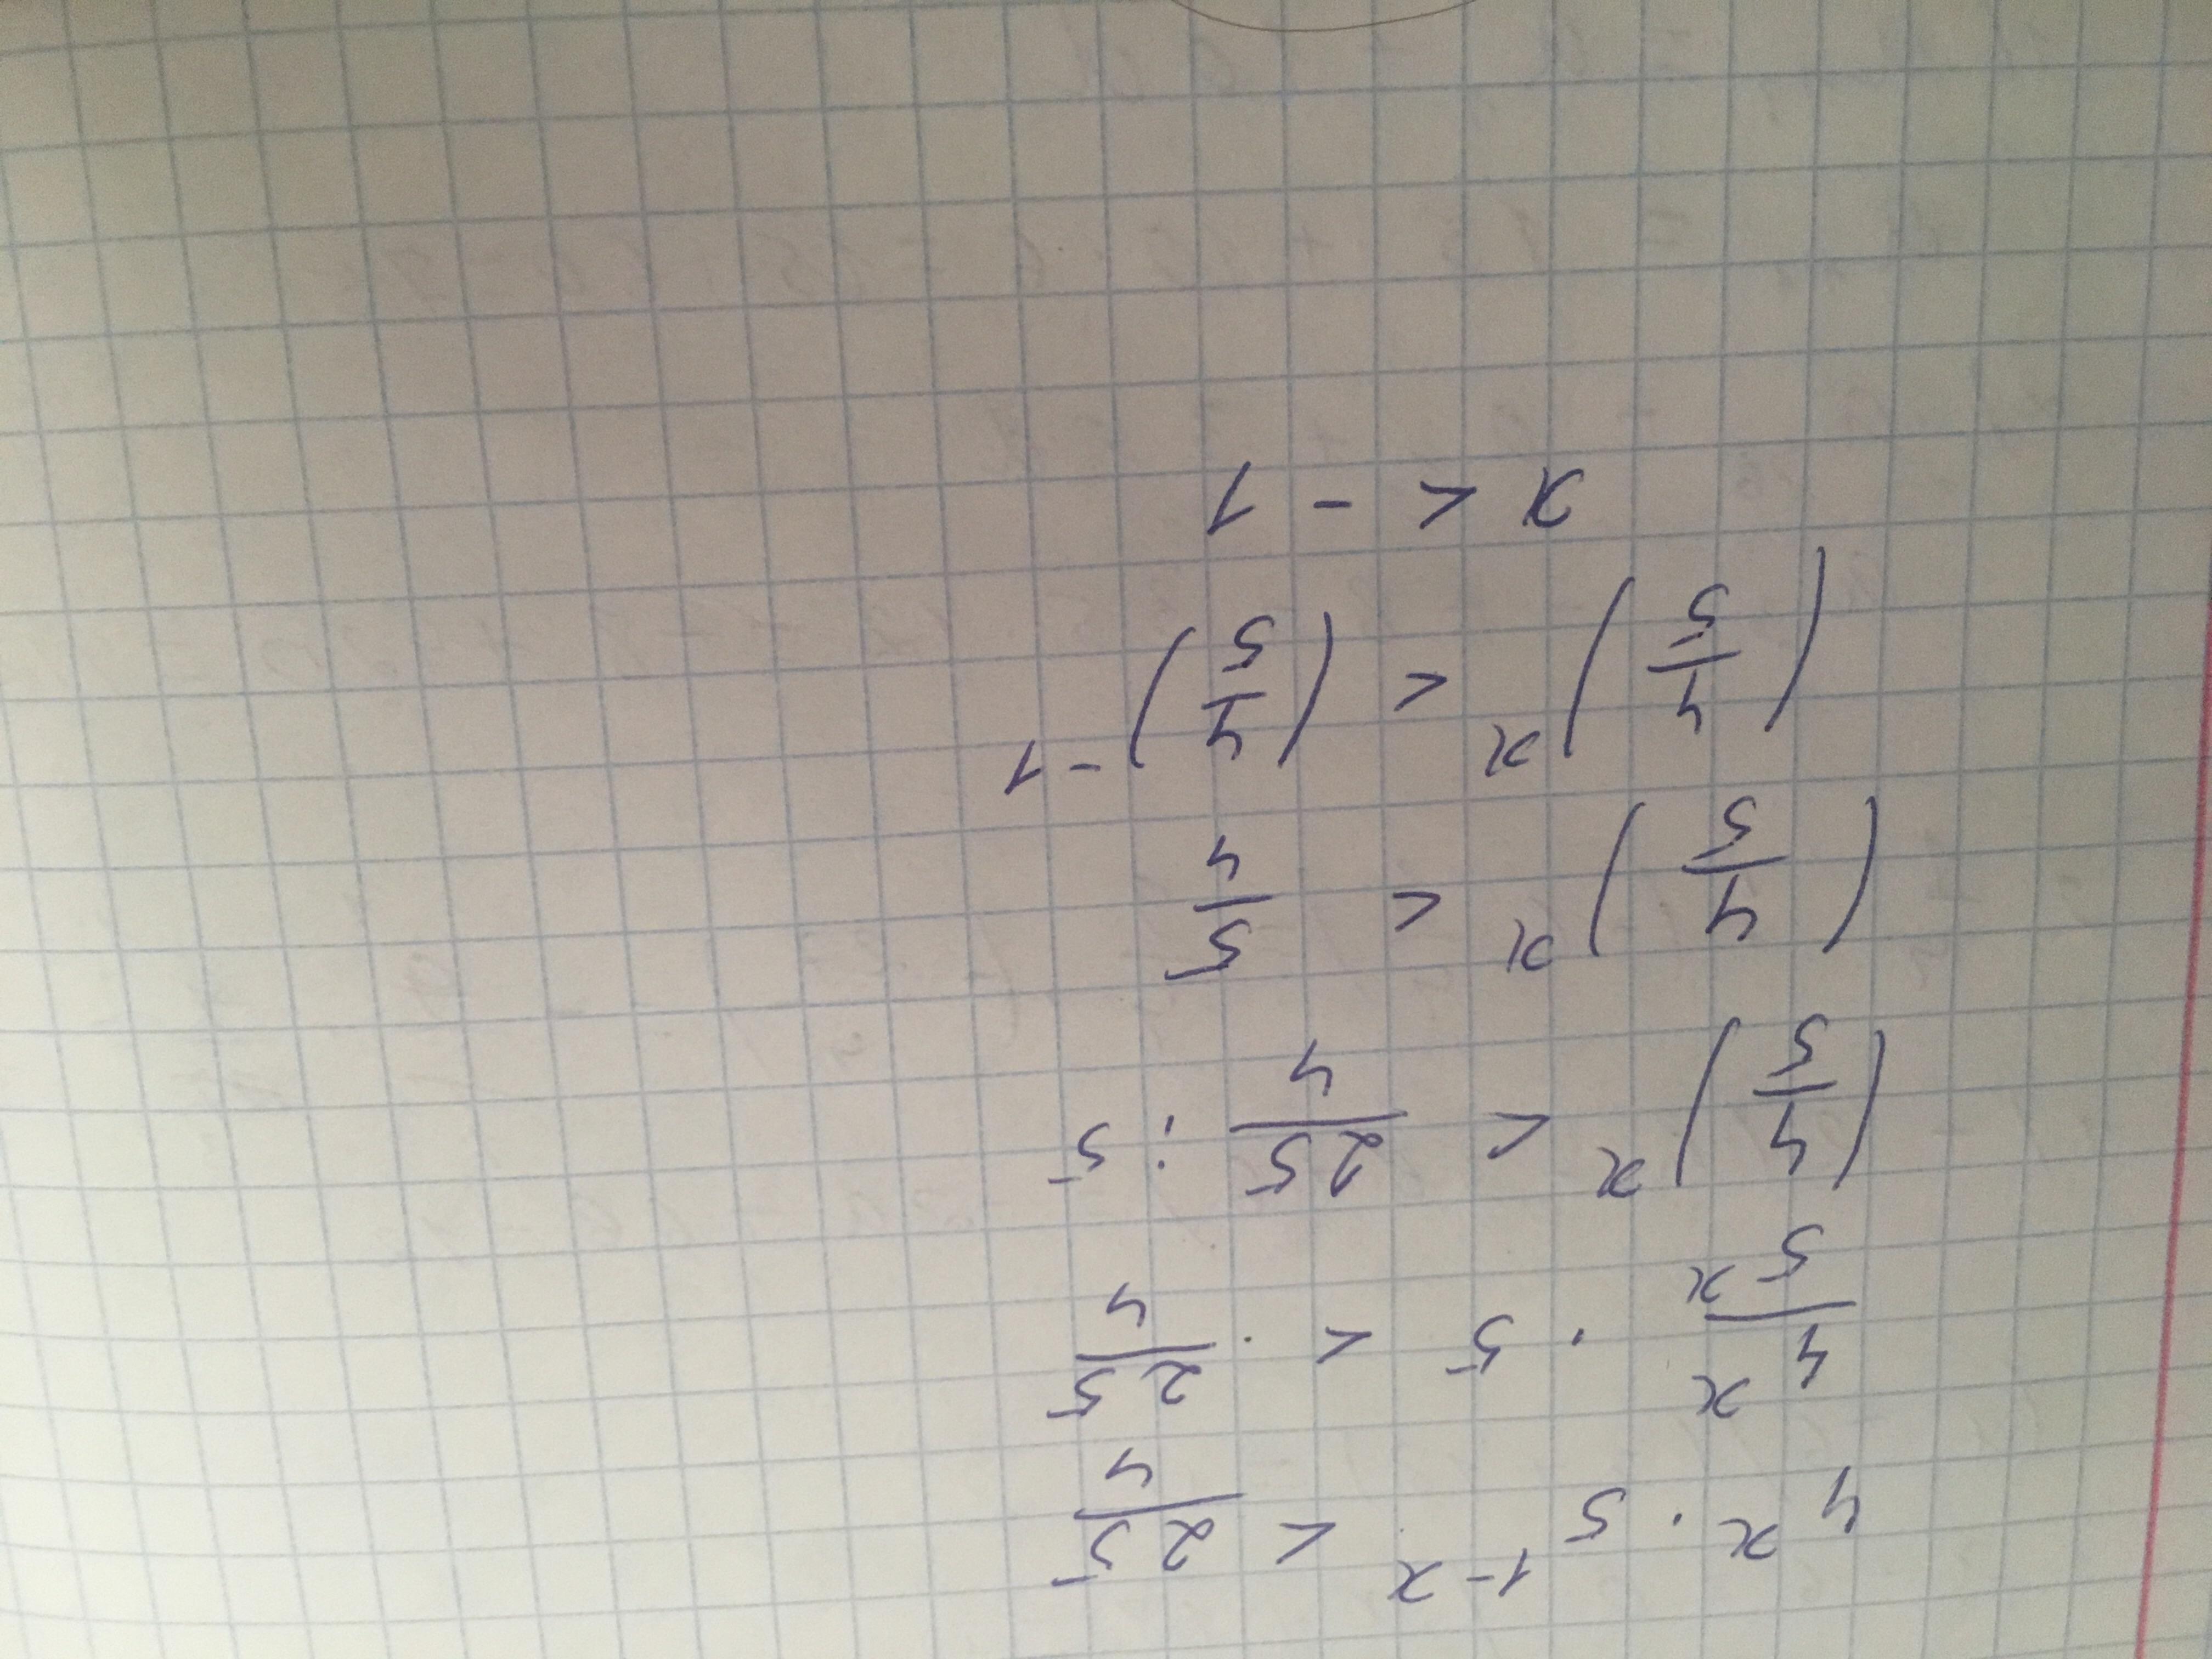 4^x · 5^(1-x) < 25/4
4^x/5^x · 5 < · 25/4
(4/5)^x < 25/4 : 5
(4/5)^x < 5/4
(4/5)^x < (4/5)^-1
x < - 1